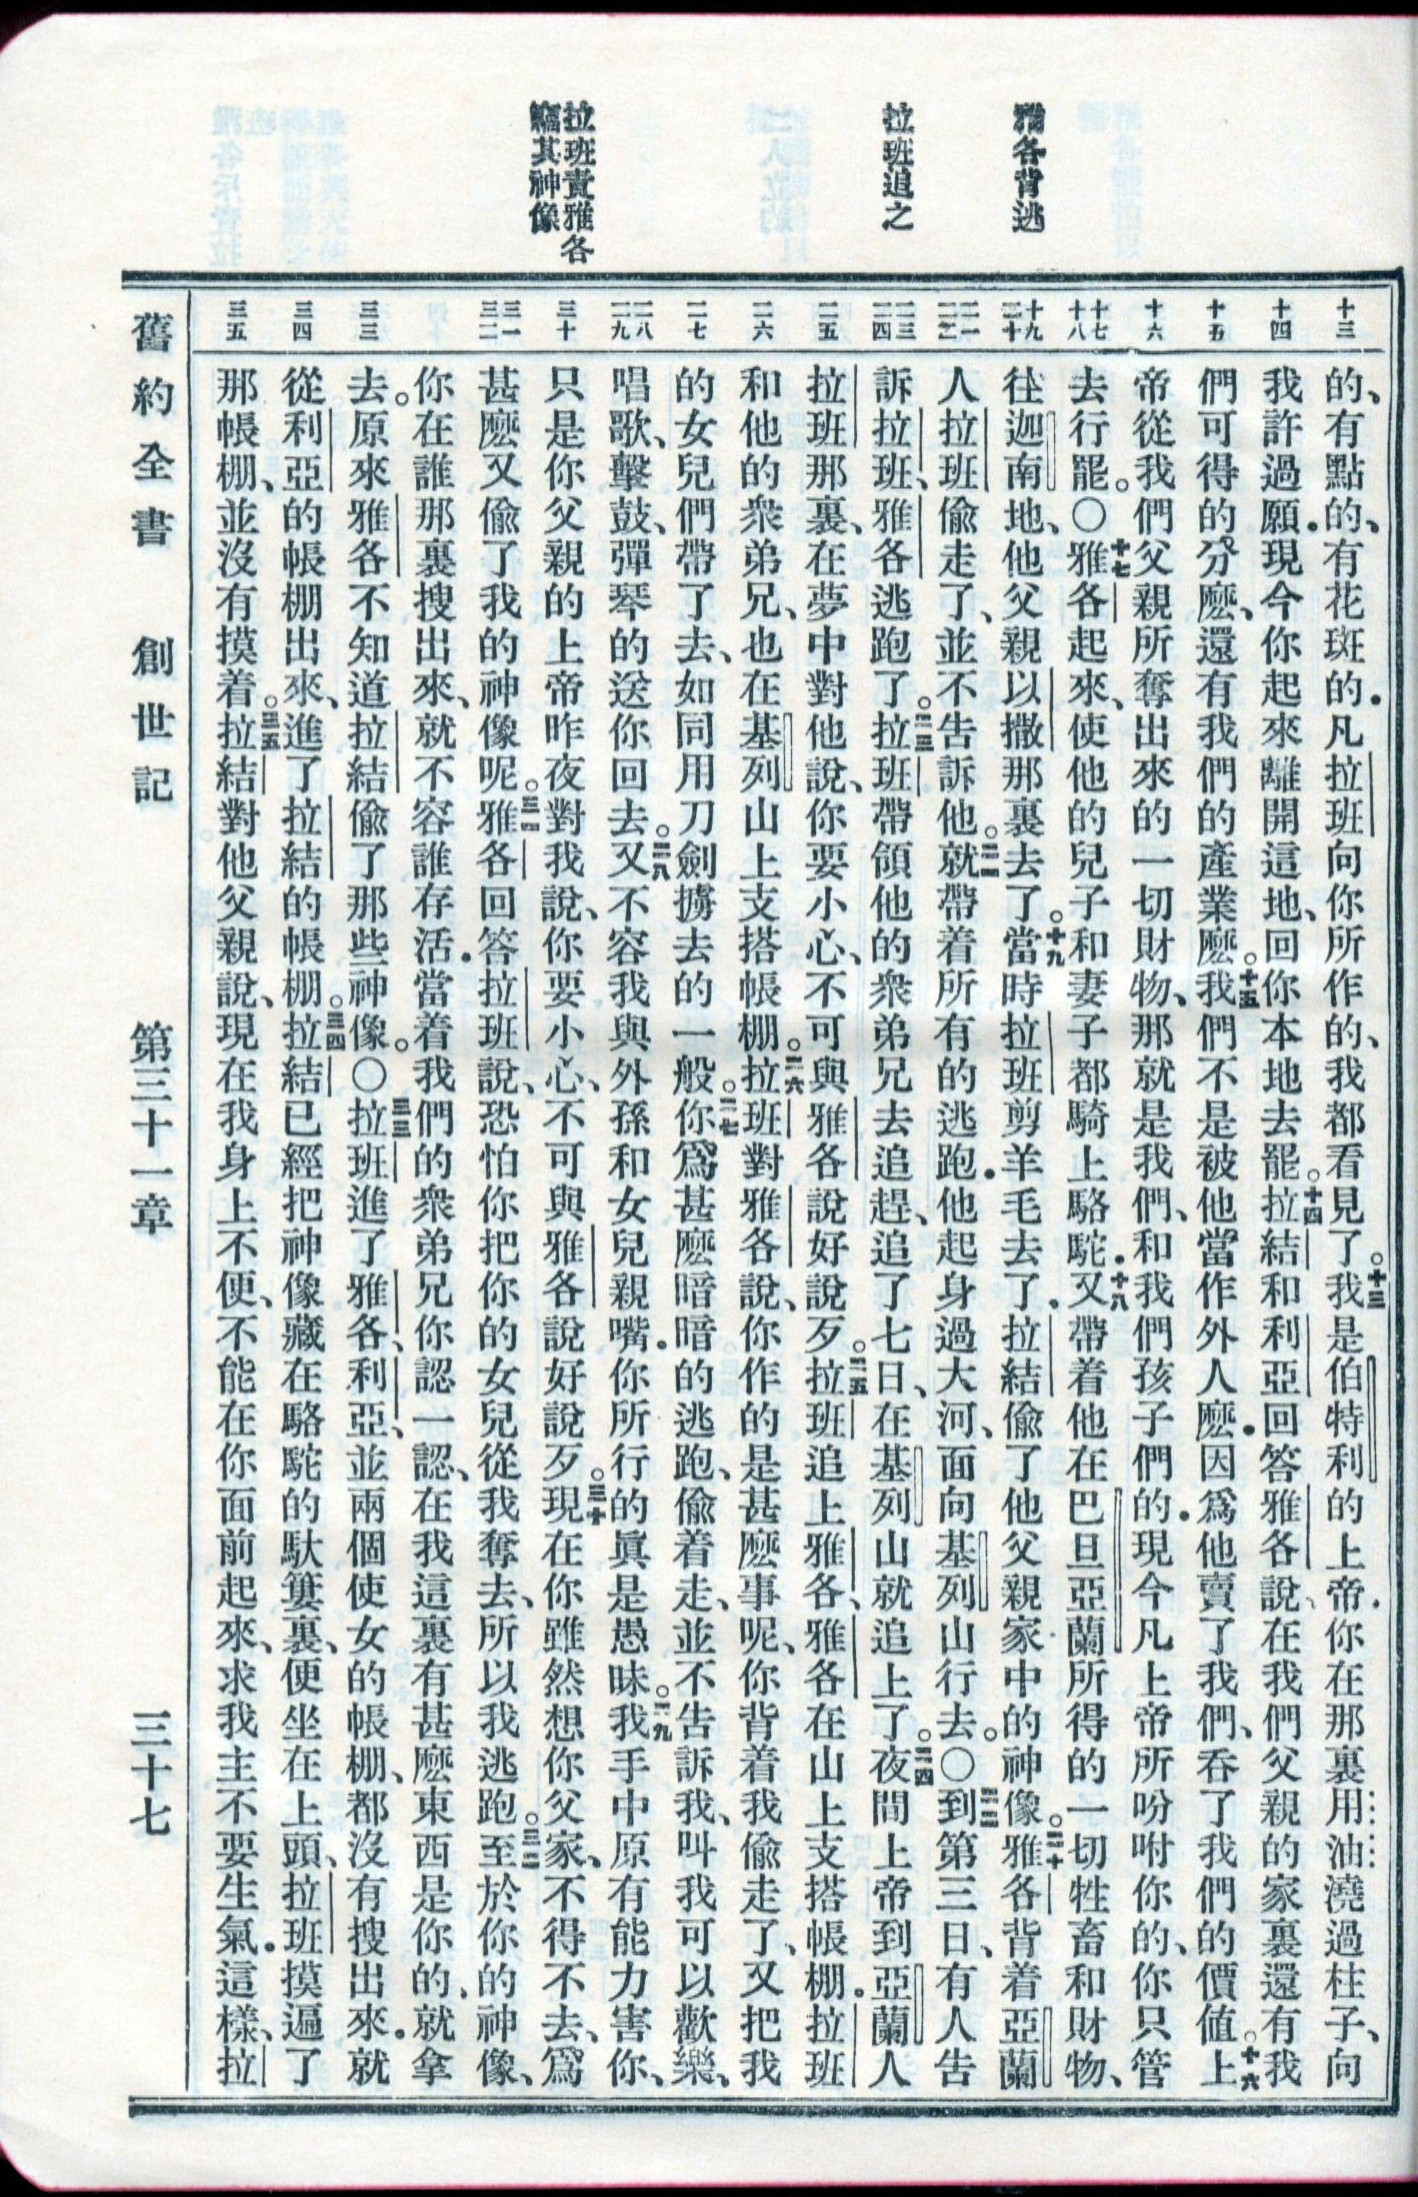 雅各背逃
拉班追之
拉班責雅各
竊其神像
十三
十四
十五
十六
十七
十八
十九
二十
二一
二二
二三
二四
二五
二六
二七
二八
二九
三十
三一
三二
三三
三四
三五
的、有點的、有花斑的．凡拉班向你所作的、我都看見了。十三我是伯特利的上帝．你在那裏用油澆過柱子、向
我許過願．現今你起來離開這地、回你本地去罷。十四拉結和利亞回答雅各說、在我們父親的家裏還有我
們可得的分麽、還有我們的產業麽。十五我們不是被他當作外人麽．因爲他賣了我們、吞了我們的價值。十六上
帝從我們父親所奪出來的一切財物、那就是我們、和我們孩子們的．現今凡上帝所吩咐你的、你只管
去行罷。〇十七雅各起來、使他的兒子和妻子都騎上駱駝．十八又帶着他在巴旦亞蘭所得的一切牲畜和財物、
往迦南地、他父親以撒那裏去了。十九當時拉班剪羊毛去了．拉結偷了他父親家中的神像。二十雅各背着亞蘭
人拉班偷走了、並不告訴他。二一就帶着所有的逃跑．他起身過大河、面向基列山行去。〇二二到第三日、有人告
訴拉班、雅各逃跑了。二三拉班帶領他的衆弟兄去追趕、追了七日、在基列山就追上了。二四夜間上帝到亞蘭人
拉班那裏、在夢中對他說、你要小心、不可與雅各說好說歹。二五拉班追上雅各、雅各在山上支搭帳棚．拉班
和他的衆弟兄、也在基列山上支搭帳棚。二六拉班對雅各說、你作的是甚麽事呢、你背着我偷走了、又把我
的女兒們帶了去、如同用刀劍擄去的一般。二七你爲甚麽暗暗的逃跑、偷着走、並不告訴我、叫我可以歡樂、
唱歌、擊鼓、彈琴的送你回去。二八又不容我與外孫和女兒親嘴．你所行的眞是愚昧。二九我手中原有能力害你、
只是你父親的上帝昨夜對我說、你要小心、不可與雅各說好說歹。三十現在你雖然想你父家、不得不去、爲
甚麽又偷了我的神像呢。三一雅各回答拉班說、恐怕你把你的女兒從我奪去、所以我逃跑。三二至於你的神像、
你在誰那裏搜出來、就不容誰存活．當着我們的衆弟兄你認一認、在我這裏有甚麽東西是你的、就拿
去。原來雅各不知道拉結偷了那些神像。〇三三拉班進了雅各、利亞、並兩個使女的帳棚、都沒有搜出來．就
從利亞的帳棚出來、進了拉結的帳棚。三四拉結已經把神像藏在駱駝的馱簍裏、便坐在上頭、拉班摸遍了
那帳棚、並沒有摸着。三五拉結對他父親說、現在我身上不便、不能在你面前起來、求我主不要生氣．這樣、拉
舊約全書　創世記　第三十一章　三十七